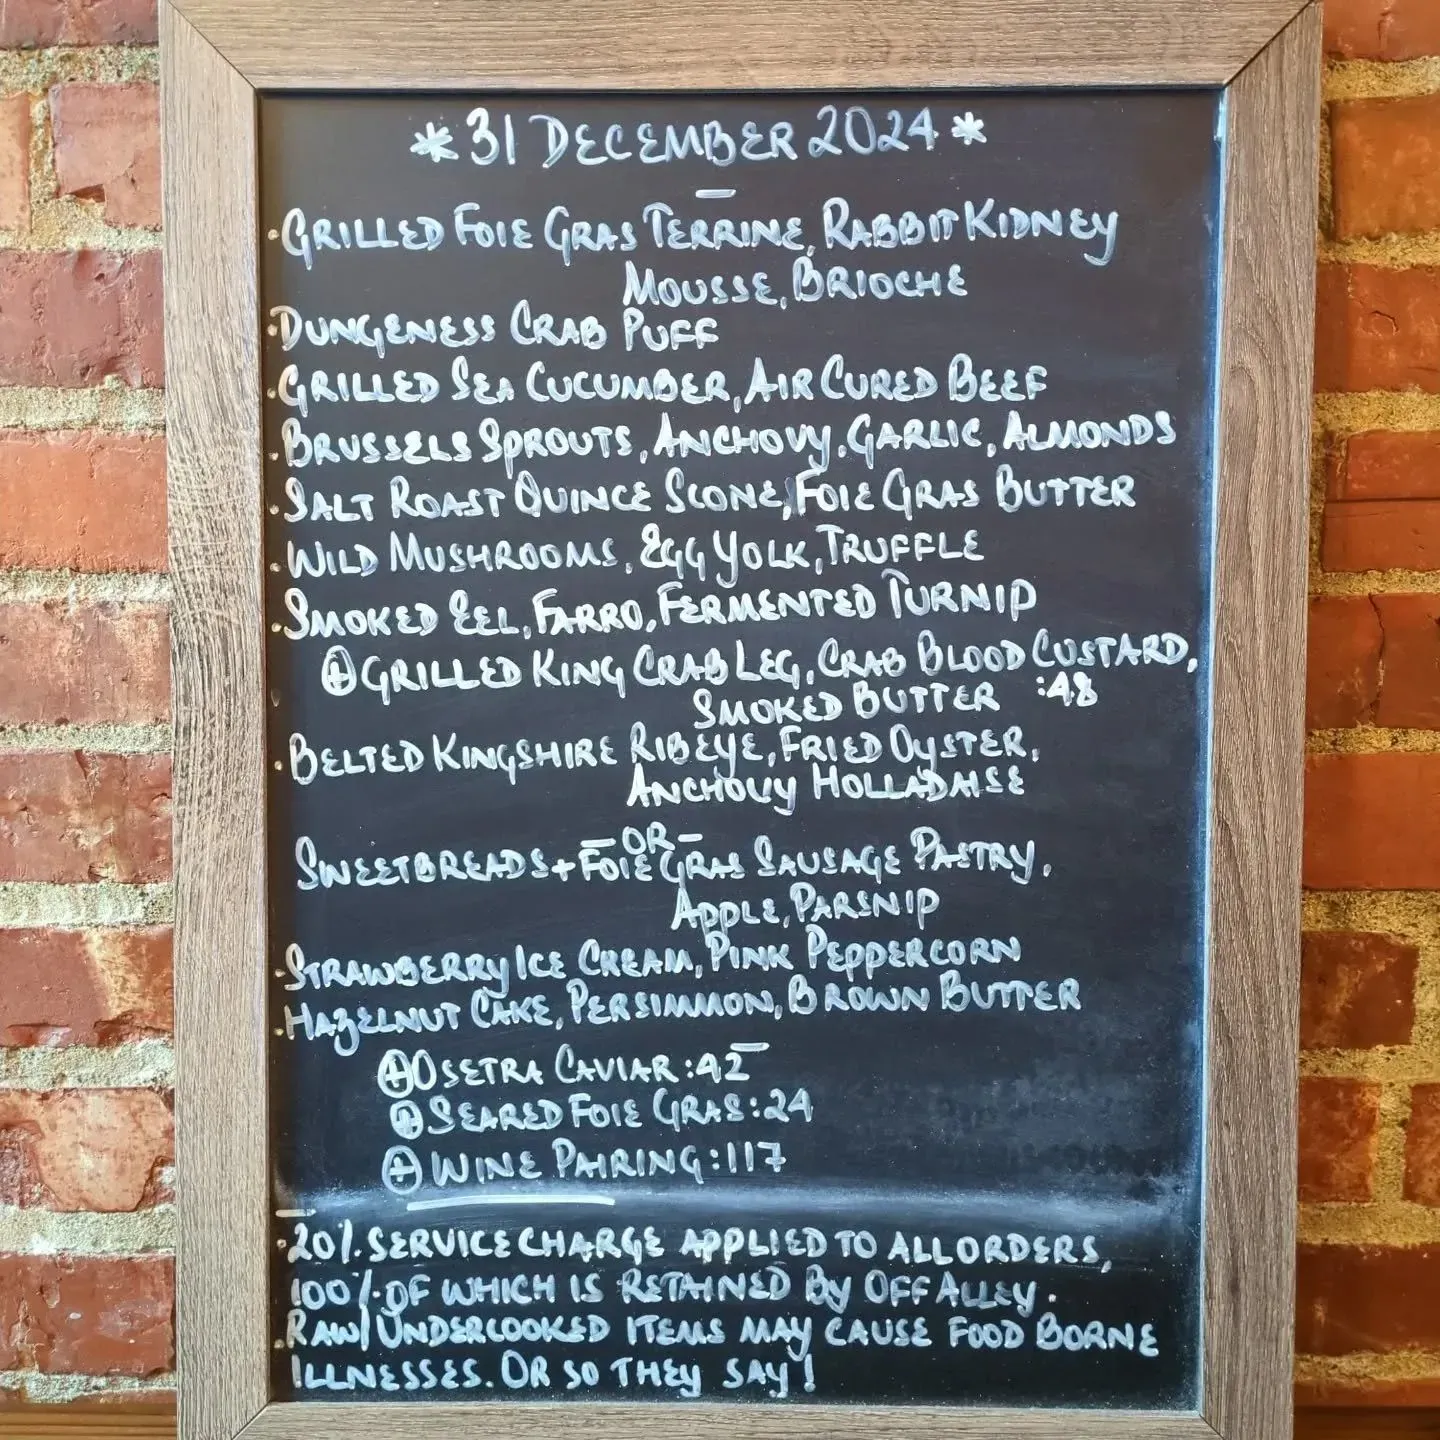 * 31 DECEMBER 2024 *
—
· GRILLED FOIE GRAS TERRINE, RABBIT KIDNEY
MOUSSE, BRIOCHE
· DUNGENESS CRAB PUFF
· GRILLED SEA CUCUMBER, AIR CURED BEEF
· BRUSSELS SPROUTS, ANCHOVY, GARLIC, ALMONDS
· SALT ROAST QUINCE SCONE, FOIE GRAS BUTTER
· WILD MUSHROOMS, EGG YOLK, TRUFFLE
· SMOKED EEL, FARRO, FERMENTED TURNIP
⊕ GRILLED KING CRAB LEG, CRAB BLOOD CUSTARD,
SMOKED BUTTER :48
· BELTED KINGSHIRE RIBEYE, FRIED OYSTER,
ANCHOVY HOLLADAISE
— OR —
SWEETBREADS + FOIE GRAS SAUSAGE PASTRY,
APPLE, PARSNIP
· STRAWBERRY ICE CREAM, PINK PEPPERCORN
· HAZELNUT CAKE, PERSIMMON, BROWN BUTTER
—
⊕ OSETRA CAVIAR :42
⊕ SEARED FOIE GRAS :24
⊕ WINE PAIRING :117
—
· 20% SERVICE CHARGE APPLIED TO ALL ORDERS,
100% OF WHICH IS RETAINED BY OFF ALLEY.
· RAW/UNDERCOOKED ITEMS MAY CAUSE FOOD BORNE
ILLNESSES. OR SO THEY SAY!